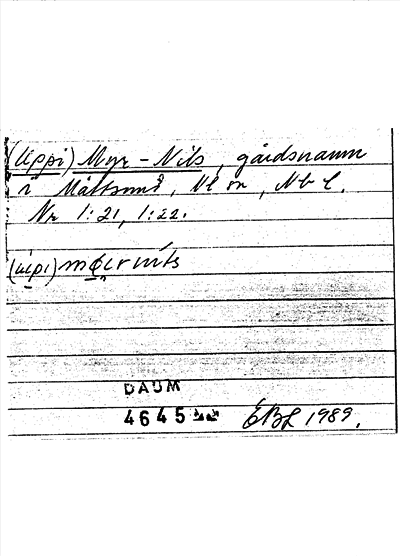 (Uppi) Myr-Nils, gårdsnamn
i Måttsund, Nl sn, Nb l.
Nr 1:21, 1:22.
DAUM
4645
EBL 1989.